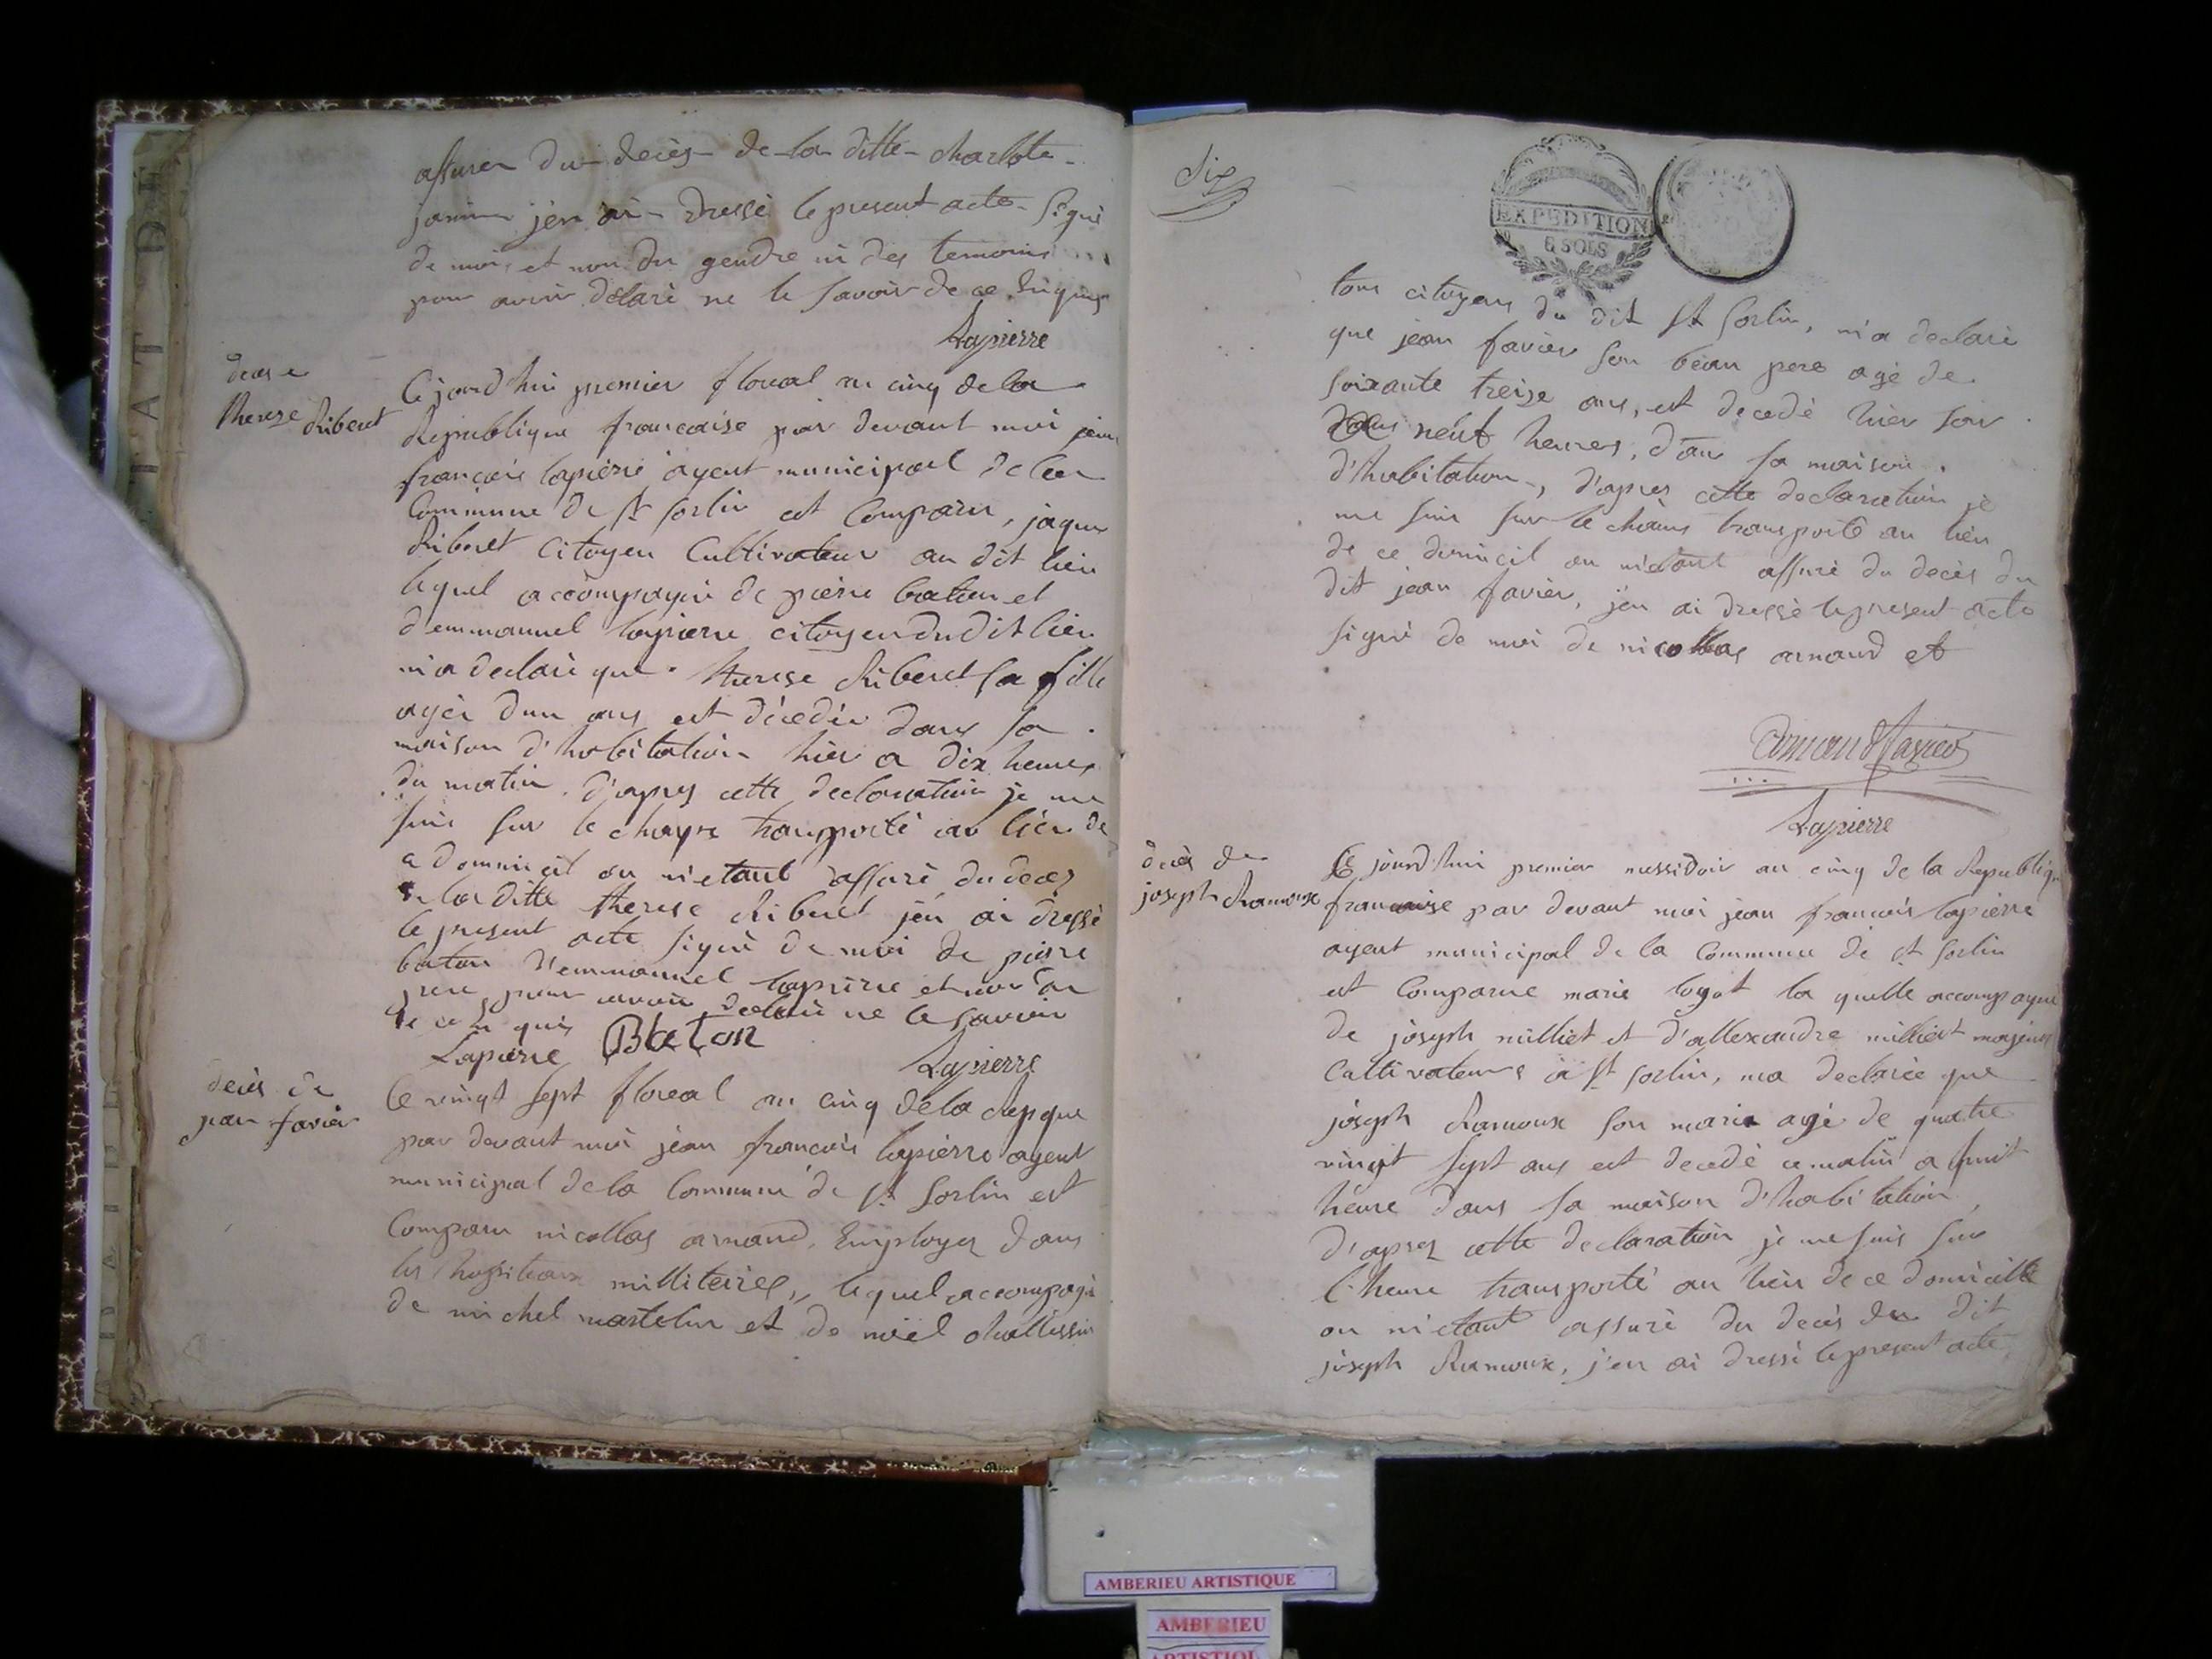 assurer du decès de la ditte charlote
janin jen ai dressé le present acte signé
de moi, et non du gendre ni des temoins
pour avoir déclaré ne le savoir de ce enquis
Lapierre
deces
therese Riberet
Cejourd'hui premier floreal an cinq de la
Republique francaise par devant moi jean
francois lapierre agent municipal de la
Commune de st sorlin est Comparu, jaque
Riberet Citoyen Cultivateur au dit lieu
lequel accompagné de pierre baton et
d'emmanuel lapierre citoyen du dit lieu
m'a declaré que therese Riberet sa fille
agée d'un ans est décédée dans sa
maison d'habitation hier a dix heures
du matin. d'apres cette declaration je me
suis sur le champs transporté au lieu de
ce domicil ou m'etant assuré du deces
de la ditte therese Riberet jen ai dressé
le present acte signé de moi de pierre
baton d'emmanuel lapierre et non du
pere, pour avoir declaré ne le savoir
de ce enquis
Lapierre Baton
Lapierre
decès de
jean favier
le vingt sept floreal an cinq de la Repque
par devant moi jean francois lapierre agent
municipal de la Commune de st sorlin est
Comparu nicollas arnaud, Employez dans
les hopitaux millitaires, lequel accompagné
de michel martelin et de noël
dix
EXPEDITION
6 SOLS
tous citoyens du dit st sorlin, m'a declaré
que jean favier son beau pere agé de
soixante treize ans, est decedé hier soir
neuf heures, dans sa maison
d'habitation, d'apres cette declaration je
me suis sur le chams transporté au lieu
de ce domicil ou m'etant assuré du decès du
dit jean favier, j'en ai dressé le present acte
signé de moi de nicollas arnaud et
Lapierre
decès de
joseph Ramoux
Ce jourd'hui premier messidoir an cinq de la Republique
francaise par devant moi jean francois lapierre
agent municipal de la Commune de st sorlin
est Comparue marie loyat la quelle accompagné
de joseph milliet et d'allexandre milliet majeurs
Cultivateurs à st sorlin, ma declarée que
joseph Ramoux son mari agé de quatre
vingt sept ans est decedé ce matin a huit
heure dans sa maison d'habitation,
d'apres cette declaration je me suis sur
l'heure transporté au lieu de ce domicille
ou m'etant assuré du decès du dit
joseph Ramoux, j'en ai dressé le present acte
AMBERIEU ARTISTIQUE
AMBERIEU
ARTISTIQUE